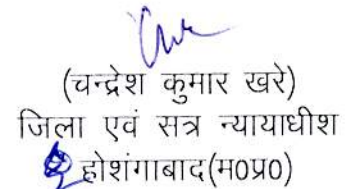 (चन्द्रेश कुमार खरे)
जिला एवं सत्र न्यायाधीश
होशंगाबाद(म0प्र0)